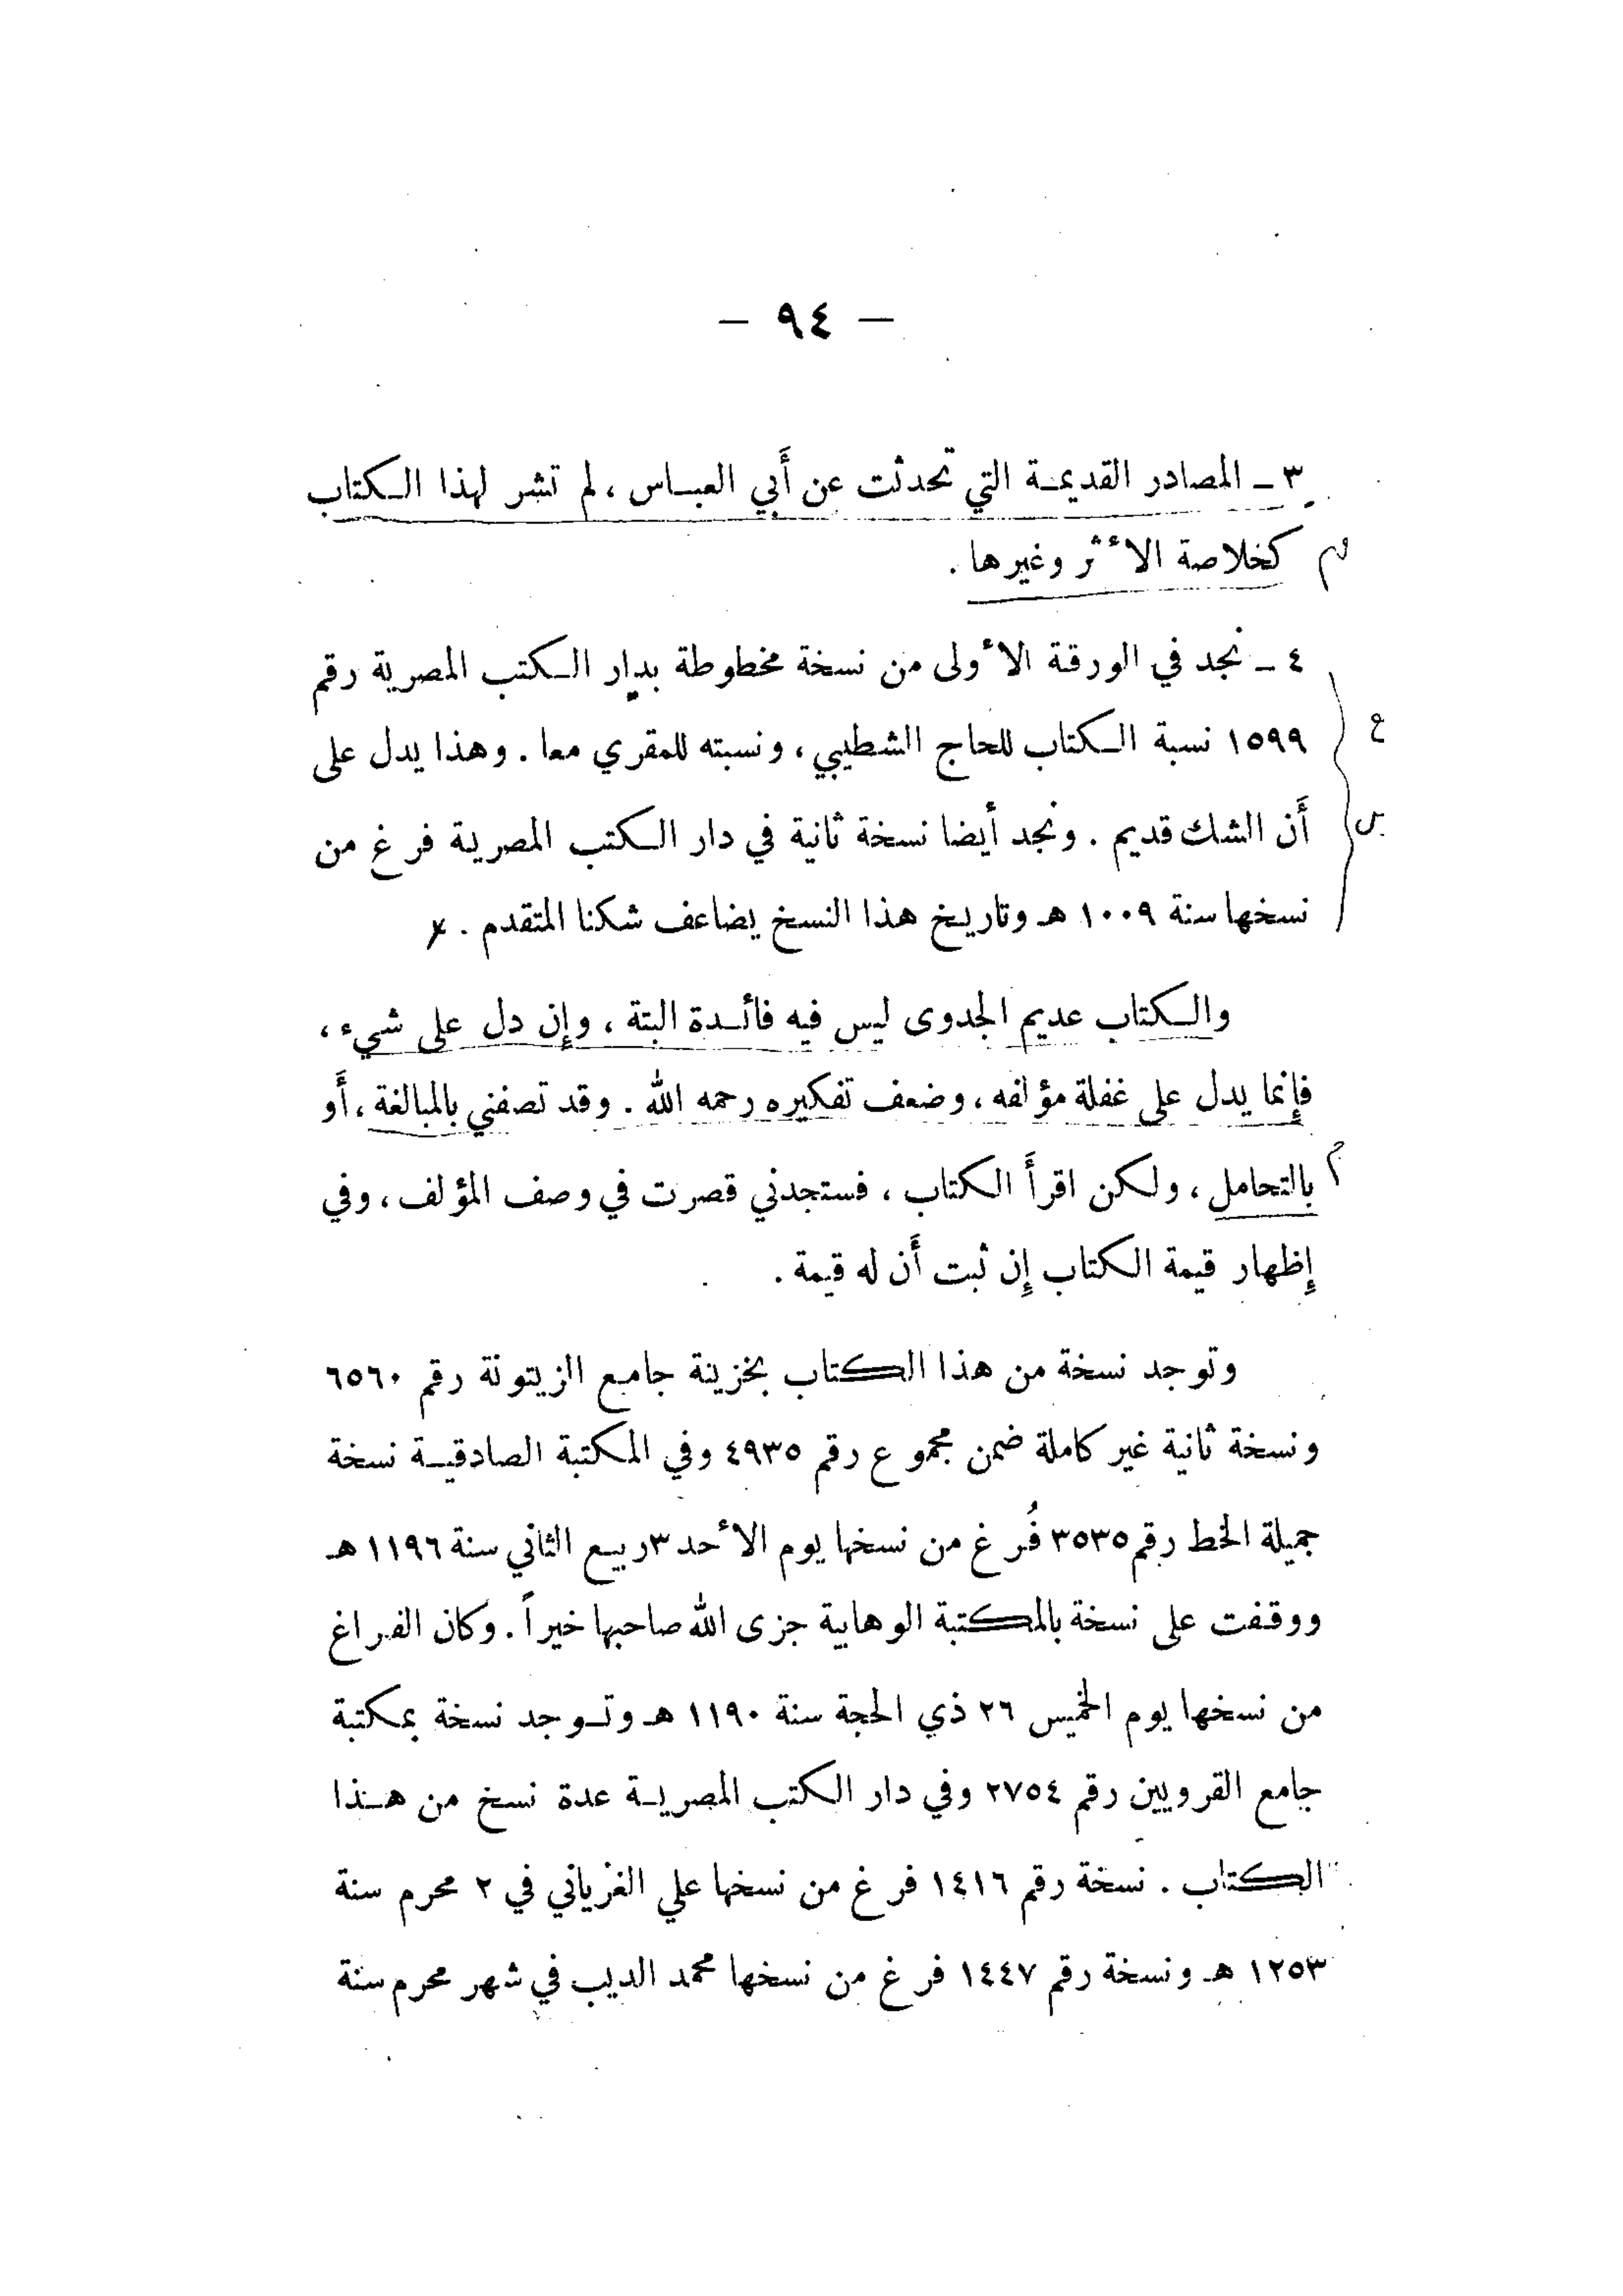 — ٩٤ —
٣ ـ المصادر القديمـة التي تحدثت عن أَبي العبـاس ، لم تشر لهذا الـكتاب
كخلاصة الأثر وغيرها .
٤ ـ نجد في الورقة الأولى من نسخة مخطوطة بدار الـكتب المصرية رقم
١٥٩٩ نسبة الـكتاب للحاج الشطيبي ، ونسبته للمقري معا . وهذا يدل على
أَن الشك قديم . ونجد أيضا نسخة ثانية في دار الـكتب المصرية فرغ من
نسخها سنة ١٠٠٩ هـ وتاريخ هذا النسخ يضاعف شكنا المتقدم .
والـكتاب عديم الجدوى ليس فيه فائـدة البتة ، وإن دل على شيء ،
فإنما يدل على غفلة مؤلفه ، وضعف تفكيره رحمه الله . وقد تصفني بالمبالغة ، أَو
بالتحامل ، ولـكن اقرأَ الـكتاب ، فستجدني قصرت في وصف المؤلف ، وفي
إظهار قيمة الـكتاب إن ثبت أَن له قيمة .
وتوجد نسخة من هذا الكتاب بخزينة جامع الزيتونة رقم ٦٥٦٠
ونسخة ثانية غير كاملة ضمن مجموع رقم ٤٩٣٥ وفي المكتبة الصادقيـة نسخة
جميلة الخط رقم ٣٥٣٥ فُرغ من نسخها يوم الأحد ٣ ربيع الثاني سنة ١١٩٦ هـ
ووقفت على نسخة بالمكتبة الوهابية جزى الله صاحبها خيراً . وكان الفراغ
من نسخها يوم الخميس ٢٦ ذي الحجة سنة ١١٩٠ هـ وتـوجد نسخة بمكتبة
جامع القرويين رقم ٢٧٥٤ وفي دار الكتب المصريـة عدة نسخ من هـذا
الكتاب . نسخة رقم ١٤١٦ فرغ من نسخها علي الغرياني في ٢ محرم سنة
١٢٥٣ هـ ونسخة رقم ١٤٤٧ فرغ من نسخها محمد الديب في شهر محرم سنة